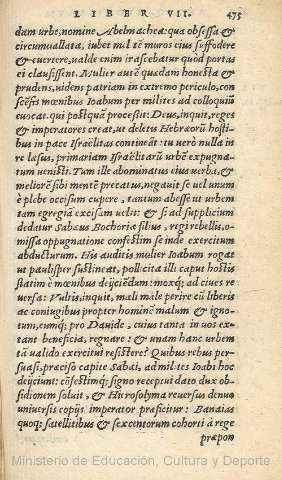 LIBER VII. 475
dam urbe, nomine Abelmacheæ: qua obsessa &
circumvallata, iubet mil tẽ muros eius suffodere
& evertere, ualde enim irascebatur quod portas
ei clausissent. Mulier autẽ quædam honesta &
prudens, uidens patriam in extremo periculo, con
scẽsis mœnibus Ioabum per milites ad colloquiũ
evocat. qui postquã processit: Deus, inquit, reges
& imperatores creat, ut deletis Hebræorũ hosti⸗
bus in pace Israëlitas contineãt: tu verò nulla in
re læsus, primariam Israëlitarũ urbẽ expugna⸗
tum uenisti. Tum ille abominatus eius uerba, &
meliorẽ sibi mentẽ precatus, negauit se uel unum
è plebe occisum cupere, tantum abesse ut urbem
tam egregiã excisam uelit: & si ad supplicium
dedatur Sabæus Bochoriæ filius, regi rebellis, o⸗
missa oppugnatione confestim se inde exercitum
abducturum. His auditis mulier Ioabum rogat
ut paulisper sustineat, pollicita illi caput hostis
statim è mœnibus deijciẽdum: moxq; ad ciues re
uersa: Vultis, inquit, mali male perire cũ liberis
ac coniugibus propter hominẽ malum & igno⸗
tum, eumq; pro Dauide, cuius tanta in uos ex⸗
tant beneficia, regnare: & unam hanc urbem
tã ualido exercitui resistere? Quibus rebus per⸗
suasi, præciso capite Sabæi, ad milites Ioabi hoc
deijciunt: cõfestimq; signo receptui dato dux ob⸗
sidionem soluit, & Hierosolyma reuersus denuo
uniuersis copijs imperator præficitur: Banaias
quoq; satellitibus & sexcentorum cohorti à rege
præpon
Ministerio de Educación, Cultura y Deporte